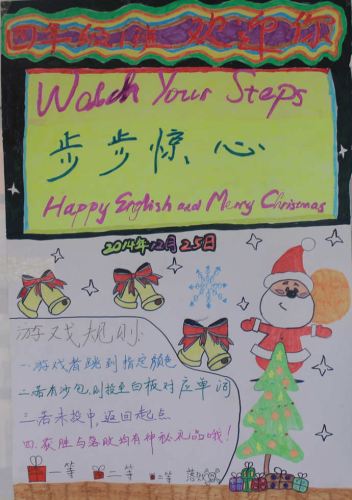 四年级1班 欢迎你
Watch Your Steps
步步惊心
Happy English and Merry Christmas
2014年12月25日
游戏规则
一.游戏者跳到指定颜色
二.若有沙包,则投至白板对应单词
三.若未投中,返回起点
四.获胜与落败均有神秘礼品哦!
一等
二等
三等
落败